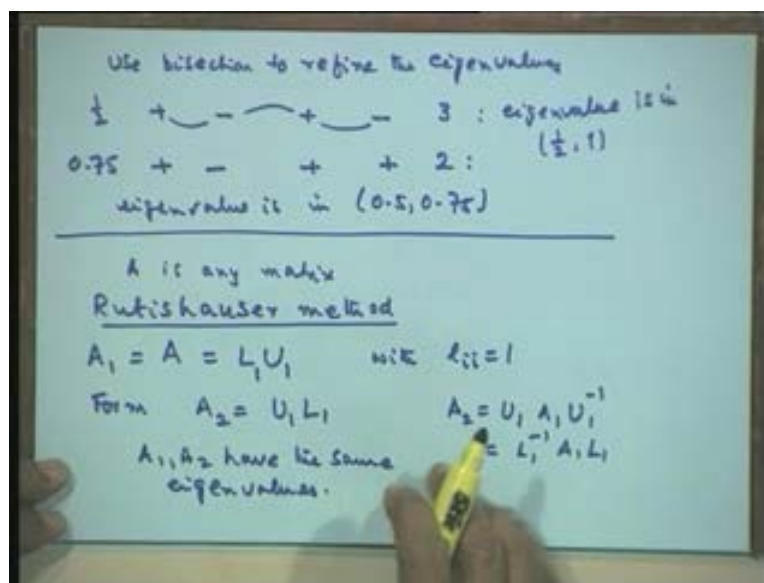 Use bisection to refine the eigenvalues
½ + - + - 3 : eigenvalue is in (½, 1)
0.75 + - + + 2 :
eigenvalue is in (0.5, 0.75)
A is any matrix
Rutishauser method
A₁ = A = L₁U₁ with lᵢᵢ = 1
Form A₂ = U₁L₁ A₂ = U₁ A₁ U₁⁻¹
A₁, A₂ have the same = L₁⁻¹ A₁ L₁
eigenvalues.